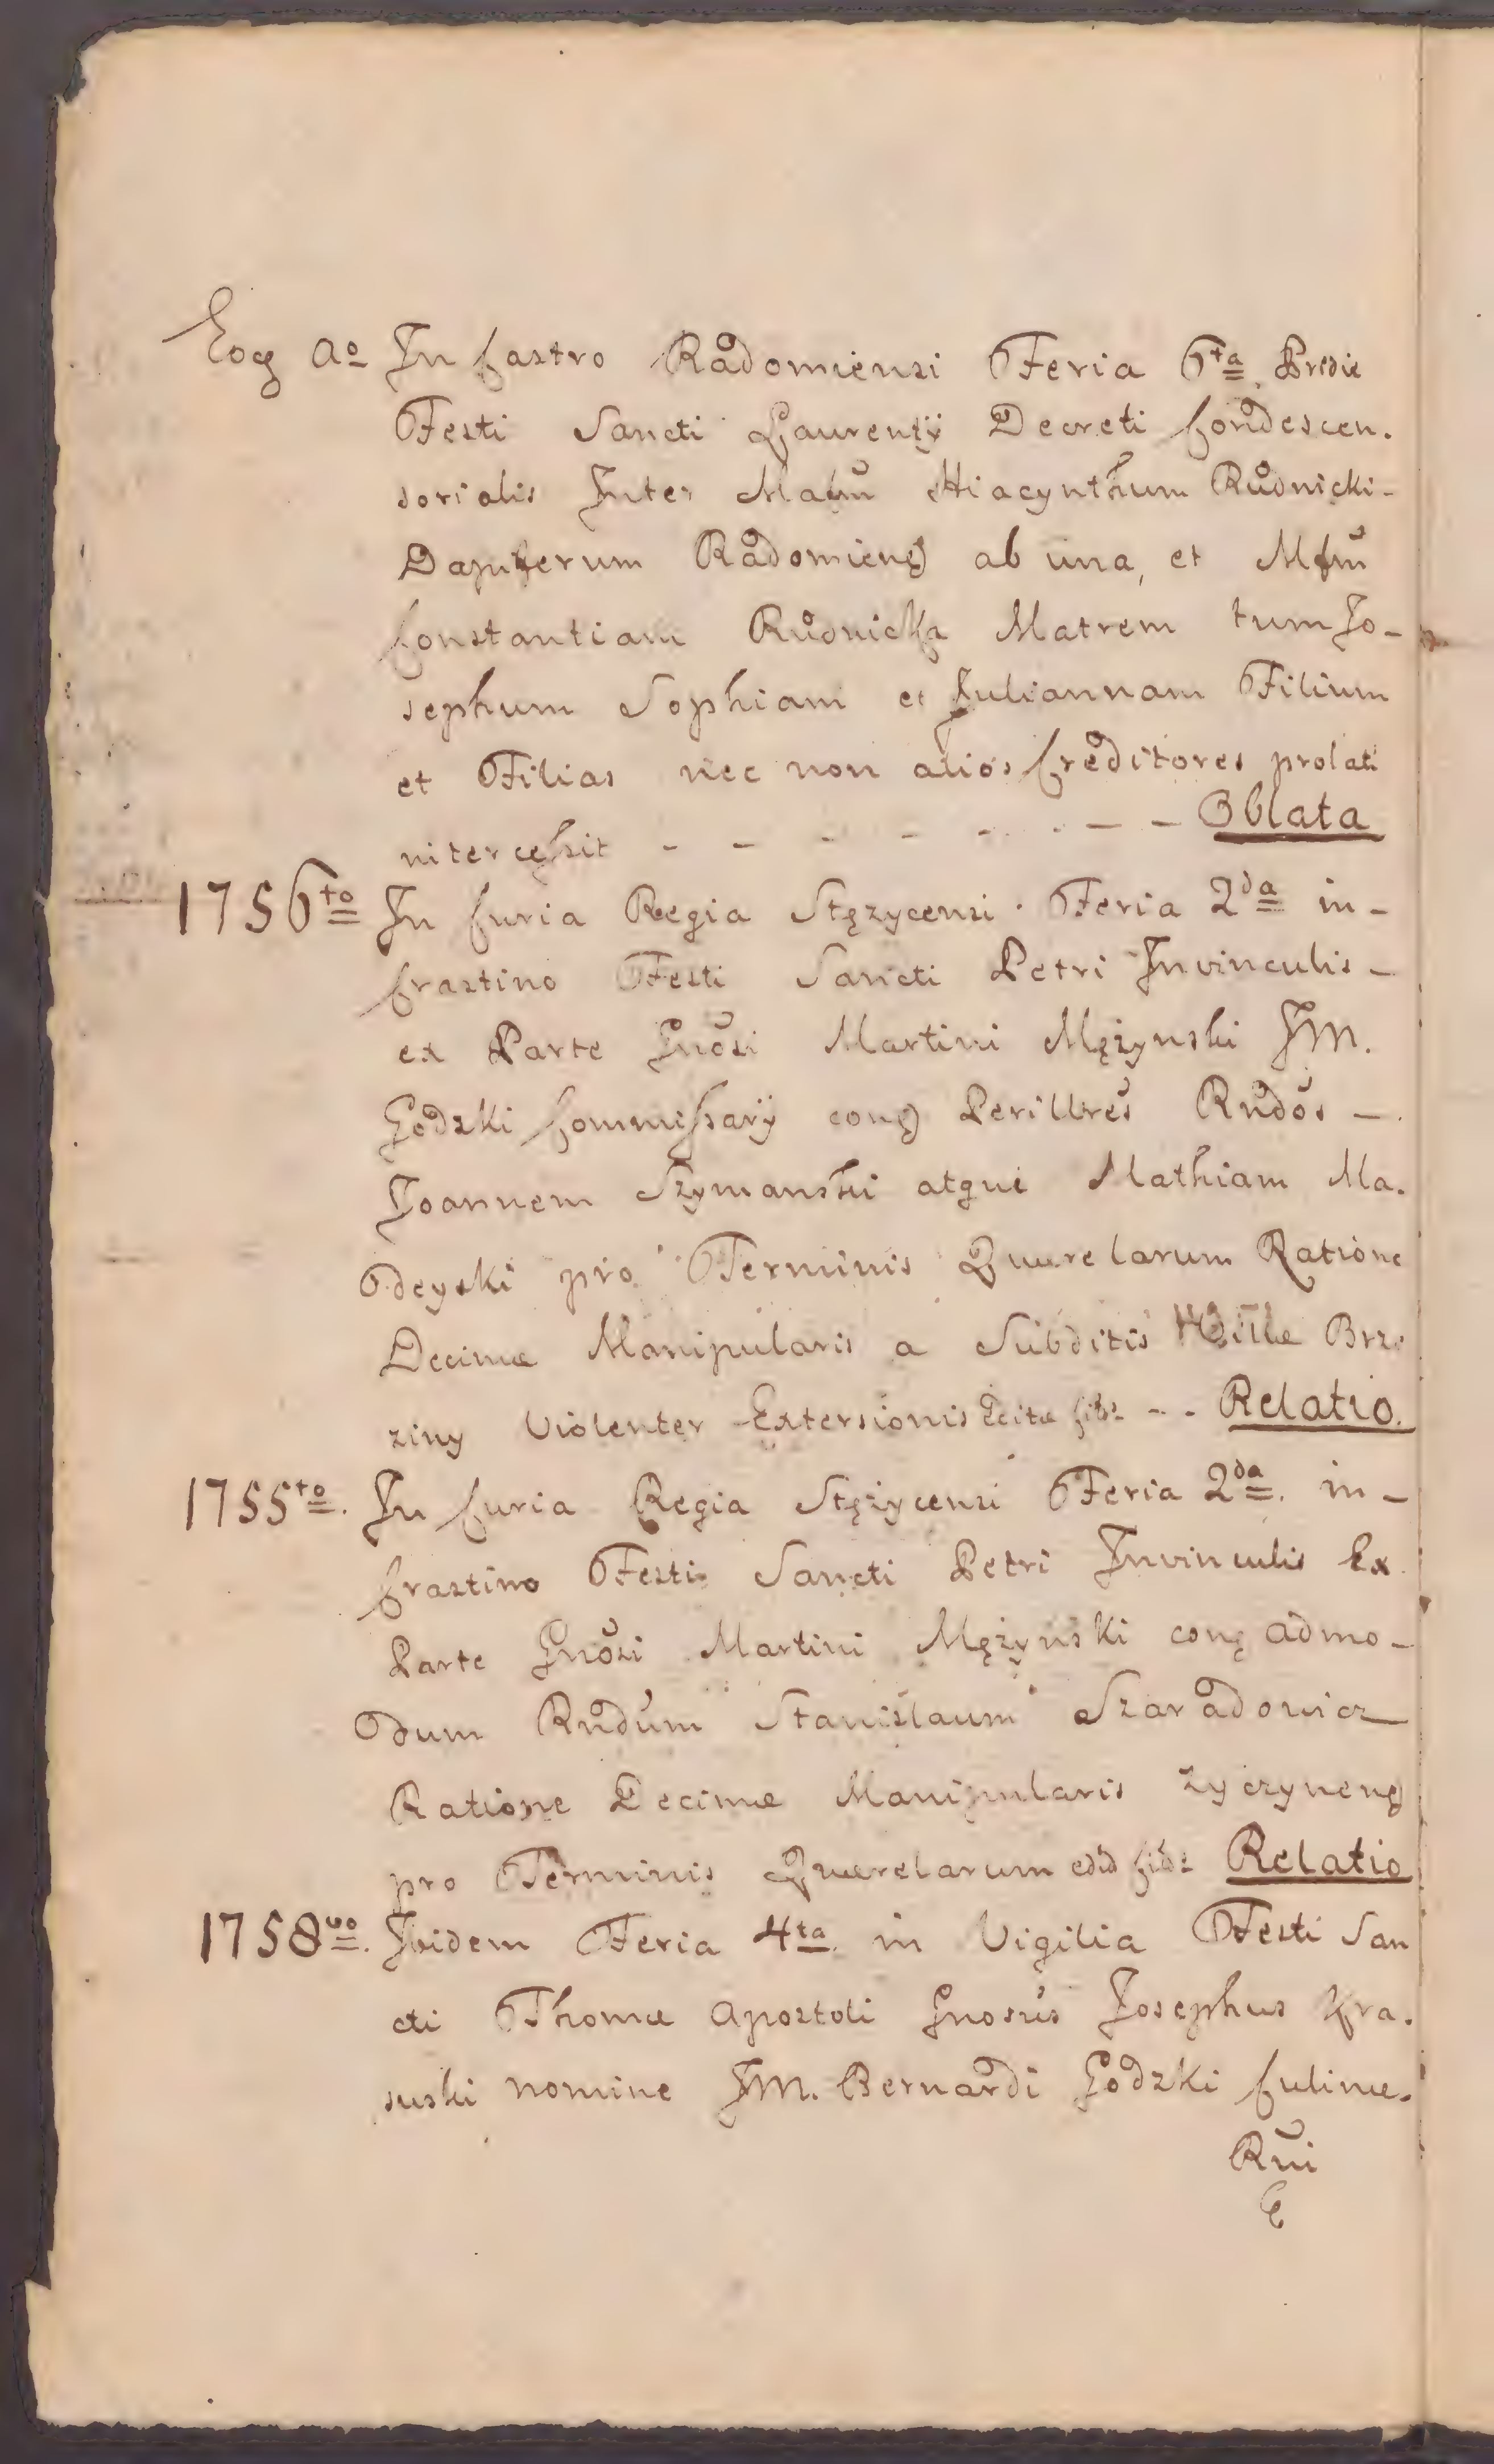 Eoq Ao In Castro Radomiensi Feria 6ta Pridie
Festi Sancti Laurentÿ Decreti Condescen.
sorialis Inter Mafūm Hiacynthum Rudnicki -
Dapiferum Radomieng ab una, et Mfūm
Constantiam Rudnicka Matrem tum Jo-
sephum Sophiam et Juliannam Filium
et Filias nec non alios Creditores prolati
intercessit - - - - - - - - Oblata
1756to In Curia Regia Stęzycensi. Feria 2da in -
Crastino Festi Sancti Petri Invinculis -
ex Parte Gnōsi Martini Mężynski JM.
Godzki Commissarÿ cong Perillrēs Rndōs -
Joannem Szymanski atque Mathiam Ma.
deyski pro Terminis Querelarum Ratione
Decimæ Manipularis a Subditis Villæ Brze
ziny Violenter Extersionis - - Relatio.
1755to. In Curia Regia Stężycensi Feria 2da. in -
Crastino Festi Sancti Petri Invinculis Ex
Parte Gnōsi Martini Mężynski cong admo -
dum Rndūm Stanislaum Szaradowicz
Ratione Decimæ Manipularis Zyczyneng
pro Terminis Querelarum Relatio
1758vo. Ibidem Feria 4ta. in Vigilia Festi San
cti Thomæ Apostoli Gnosūs Josephus Kra.
suski nomine JM. Bernardi Godzki Culmē.
Rui